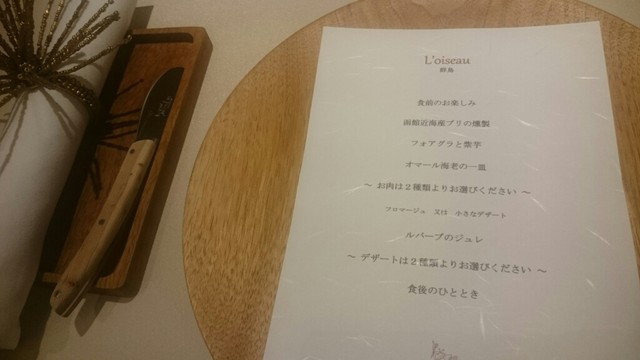 L'oiseau
食前のお楽しみ
函館近海産ブリの燻製
フォアグラと紫芋
オマール海老の一皿
～ お肉は２種類よりお選びください ～
フロマージュ 又は 小さなデザート
ルバーブのジュレ
～ デザートは２種類よりお選びください ～
食後のひととき